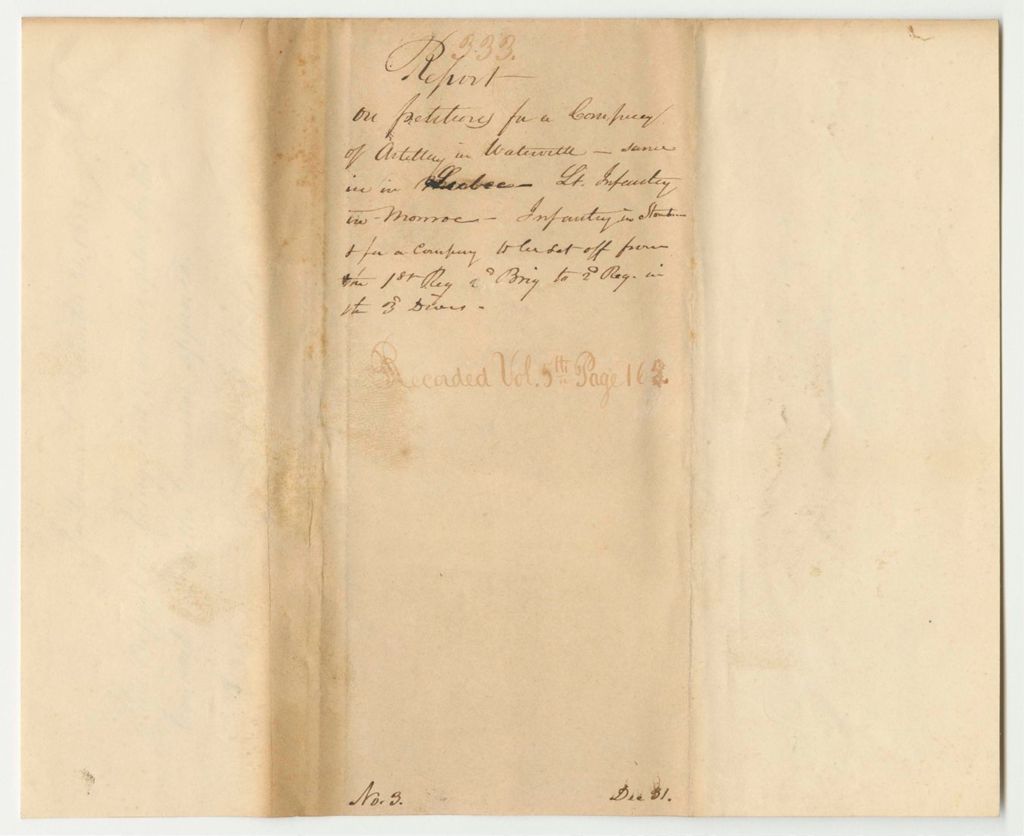 333.
Report
on petitions for a Company
of Artillery in Waterville – same
in in Lubec – Lt. Infantry
in Monroe – Infantry in
& for a Company to be set off from
the 1st Reg 2d Brig to 2d Reg. in
the 3d Divis –
Recorded Vol. 5th Page 16
No. 3. Dec 31.